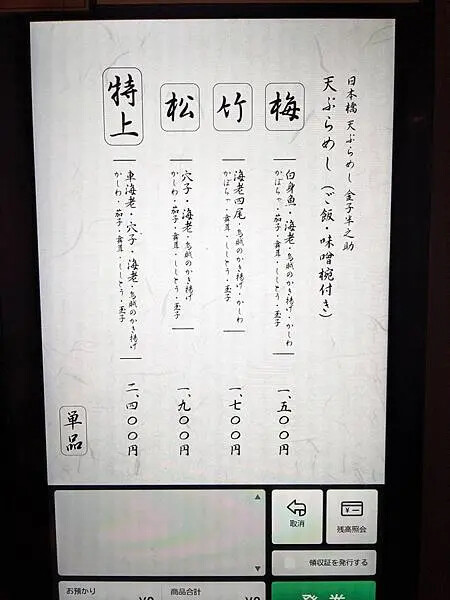 日本橋 天ぷらめし 金子半之助
天ぷらめし(ご飯・味噌椀付き)
梅
白身魚・海老・烏賊のかき揚げ・かしわ
かぼちゃ・茄子・舞茸・ししとう・玉子
一、五〇〇円
竹
海老四尾・烏賊のかき揚げ・かしわ
かぼちゃ・茄子・舞茸・ししとう・玉子
一、七〇〇円
松
穴子・海老・烏賊のかき揚げ
かしわ・茄子・舞茸・ししとう・玉子
一、九〇〇円
特上
車海老・穴子・海老・烏賊のかき揚げ
かしわ・茄子・舞茸・ししとう・玉子
二、四〇〇円
単品
取消
残高照会
領収証を発行する
お預かり
商品合計
¥0
¥0
発券